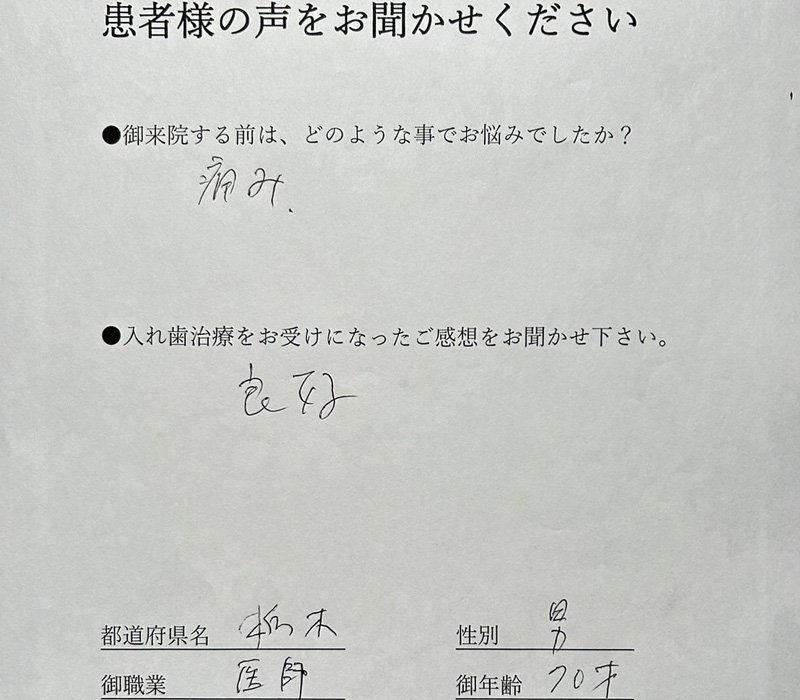 患者様の声をお聞かせください
●御来院する前は、どのような事でお悩みでしたか？
痛み.
●入れ歯治療をお受けになったご感想をお聞かせ下さい。
良好
都道府県名 栃木 性別 男
御職業 医師 御年齢 70才